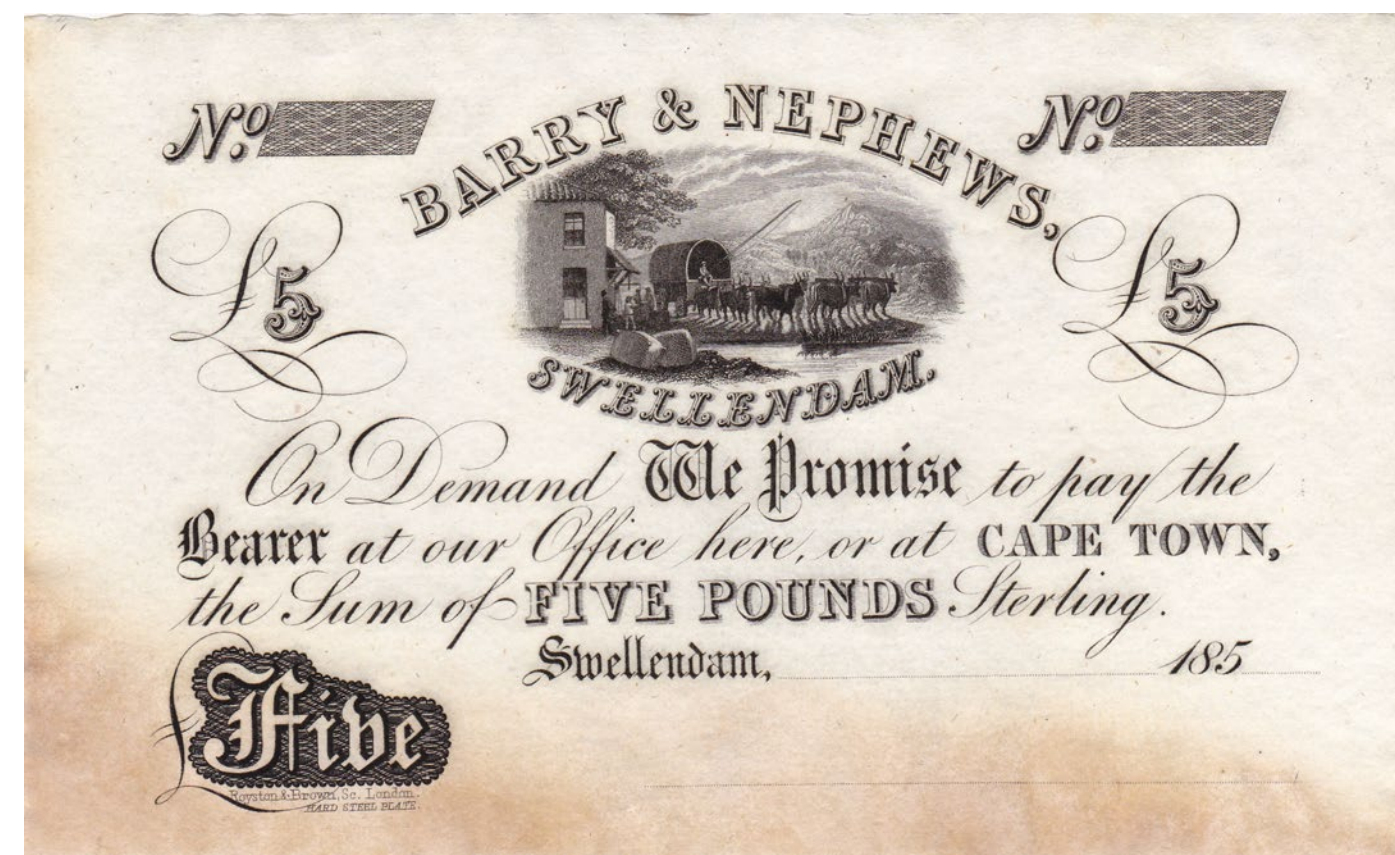 Nº Nº
BARRY & NEPHEWS,
£5 £5
SWELLENDAM.
On Demand We Promise to pay the
Bearer at our Office here, or at CAPE TOWN,
the Sum of FIVE POUNDS Sterling.
Swellendam, 185
Five
Royston & Brown, Sc. London.
HARD STEEL PLATE.